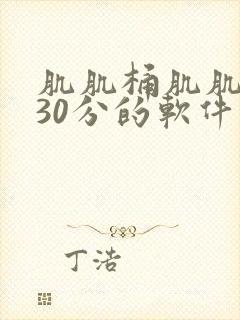 肌肌桶肌肌
30分的軟件
丁浩